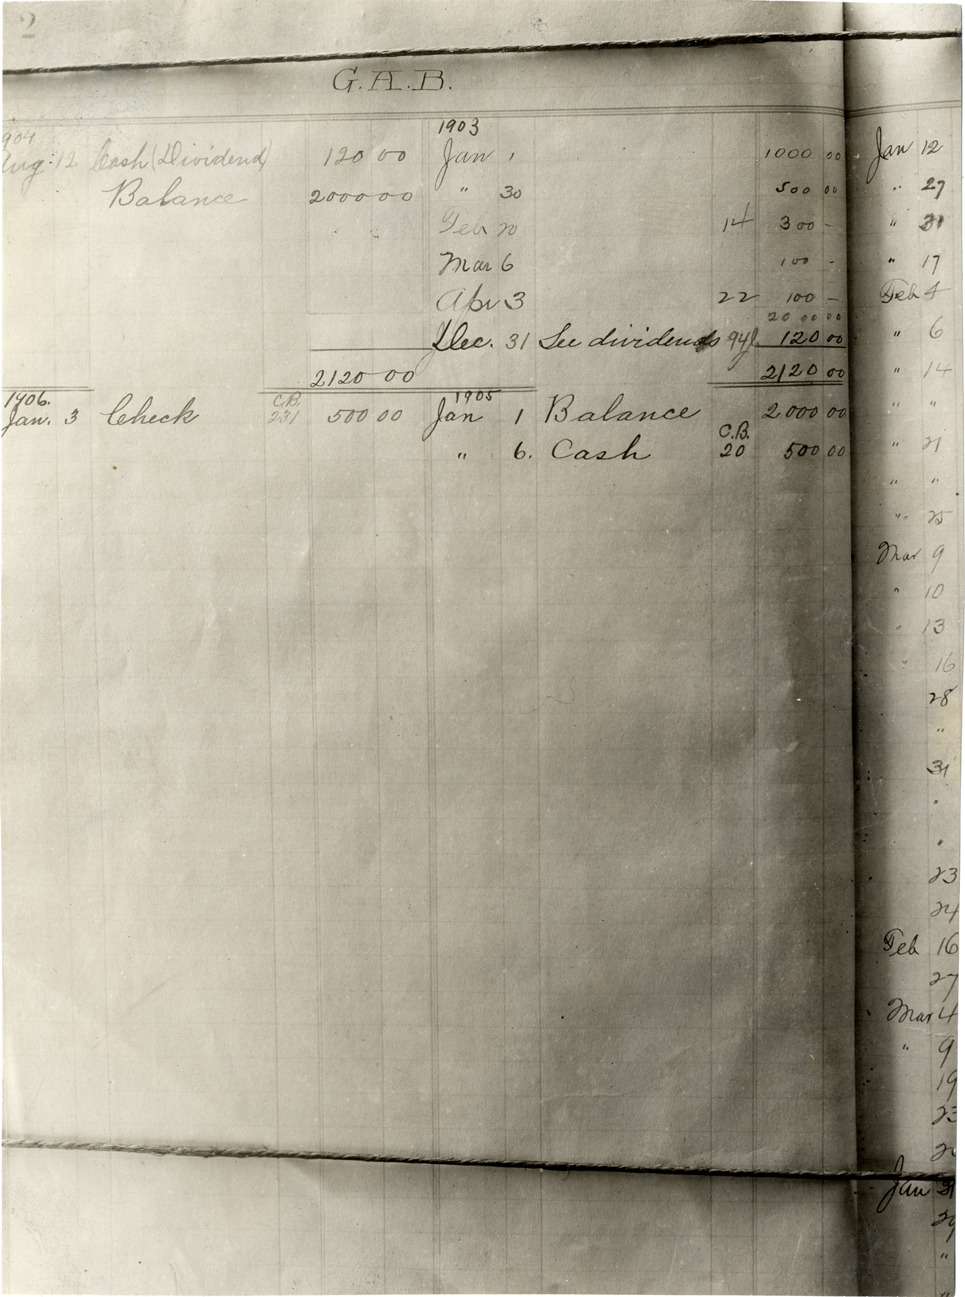 2
G.A.B.
1904 1903
Aug. 12 Cash (Dividend) 120 00 Jan 1 1000 00
Balance 2000 00 " 30 500 00
Feb 20 14 300 -
Mar 6 100 -
Apr 3 22 100 -
20 00 00
Dec. 31 See dividends 94 120 00
2120 00 2120 00
1906. 1905
Jan. 3 Check C.B. 231 500 00 Jan 1 Balance 2000 00
" 6. Cash C.B. 20 500 00
Jan 12
" 27
" 31
" 17
Feb 4
" 6
" 14
" "
" 21
" "
" 25
Mar 9
" 10
" 13
" 16
28
"
31
"
"
23
24
Feb 16
27
Mar 4
" 9
19
23
Jan 31
29
"
"